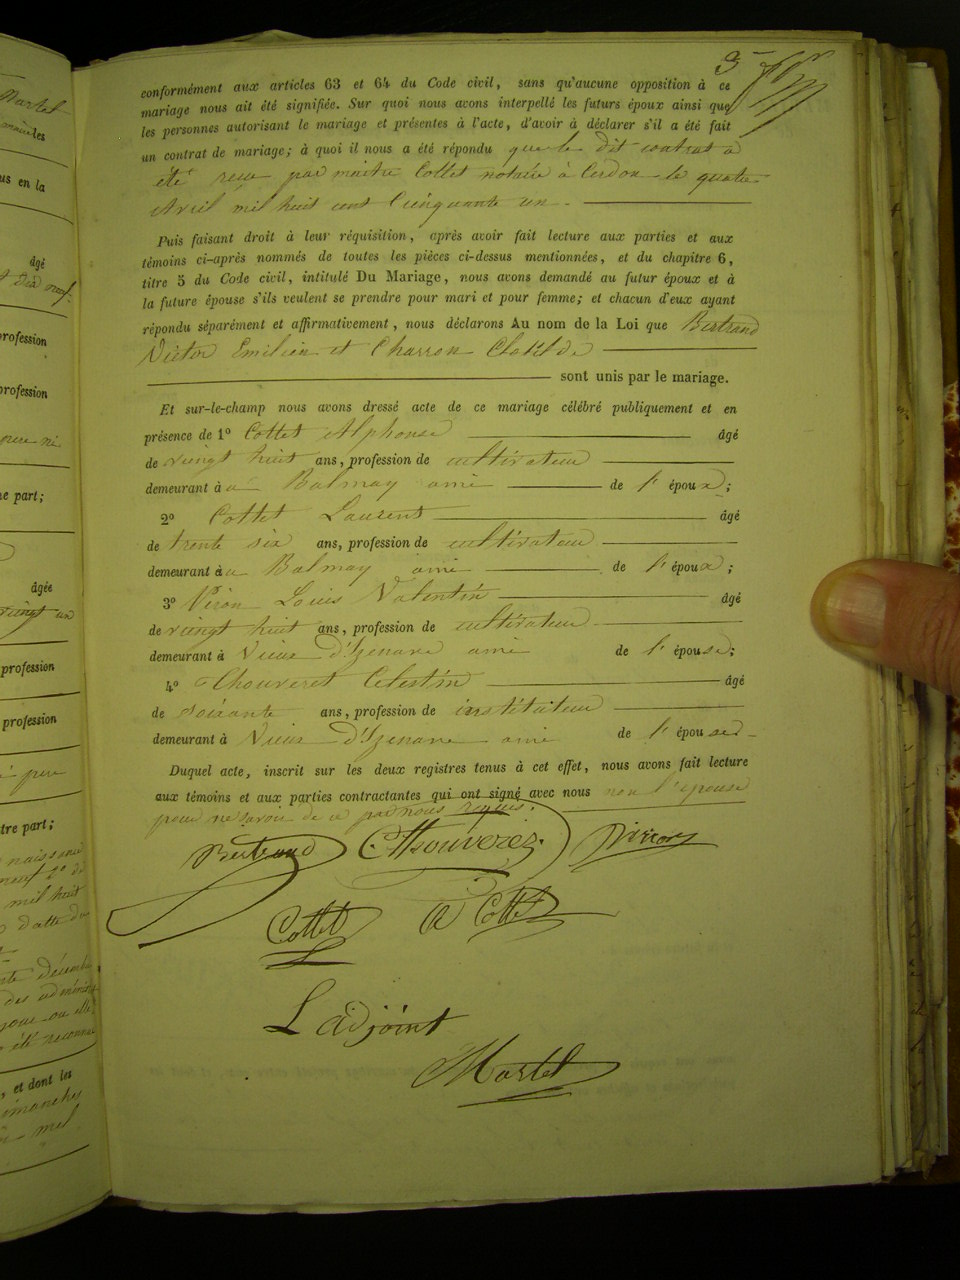 3
conformément aux articles 63 et 64 du Code civil, sans qu'aucune opposition à ce
mariage nous ait été signifiée. Sur quoi nous avons interpellé les futurs époux ainsi que
les personnes autorisant le mariage et présentes à l'acte, d'avoir à déclarer s'il a été fait
un contrat de mariage; à quoi il nous a été répondu que le dit contrat a
été reçu par maitre Cottet notaire à Cerdon le quatre
Avril mil huit cent Cinquante un.
Puis faisant droit à leur réquisition, après avoir fait lecture aux parties et aux
témoins ci-après nommés de toutes les pièces ci-dessus mentionnées, et du chapitre 6,
titre 5 du Code civil, intitulé Du Mariage, nous avons demandé au futur époux et à
la future épouse s'ils veulent se prendre pour mari et pour femme; et chacun d'eux ayant
répondu séparément et affirmativement, nous déclarons Au nom de la Loi que Bertrand
Victor Emilien et Charron Clotilde
sont unis par le mariage.
Et sur-le-champ nous avons dressé acte de ce mariage célébré publiquement et en
présence de 1o Cottet Alphonse âgé
de vingt huit ans, profession de cultivateur
demeurant à a Balmay ami de l'époux;
2o Cottet Laurent âgé
de trente six ans, profession de cultivateur
demeurant à a Balmay ami de l'époux;
3o Louis Valentin âgé
de vingt huit ans, profession de cultivateur
demeurant à Vieux d'Izenave ami de l'épouse;
4o Chouveret Celestin âgé
de soixante ans, profession de instituteur
demeurant à Vieux d'Izenave ami de l'épouse
Duquel acte, inscrit sur les deux registres tenus à cet effet, nous avons fait lecture
aux témoins et aux parties contractantes qui ont signé avec nous non l'épouse
pour ne savoir de ce par nous requis.
Bertrand Chouverez
Cottet A Cottet
L'adjoint
Martel
Martel
les
us en la
âgé
rofession
rofession
e part;
âgée
vingt un
profession
profession
tre part;
mil huit
, et dont les